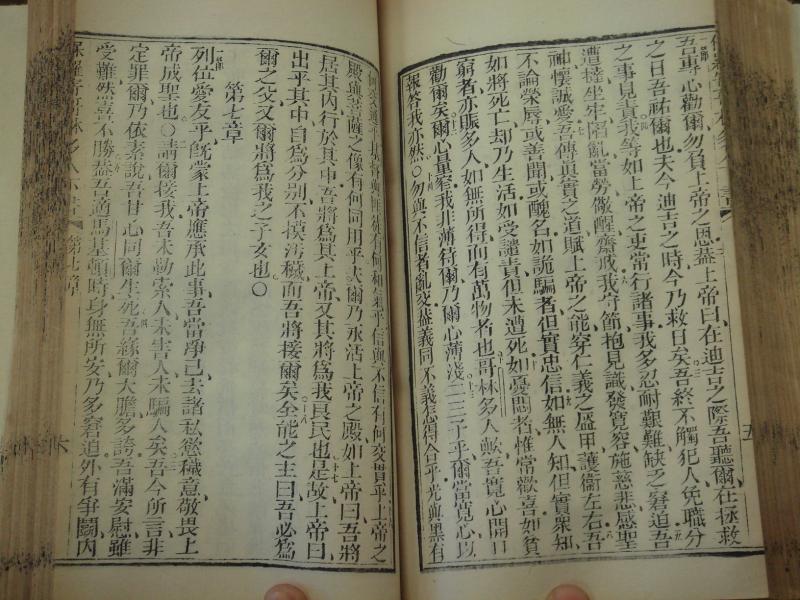 吾專心勸爾勿負上帝之恩蓋上帝曰在迪吉之際吾聽爾在拯救
之日吾祐爾也夫今迪吉之時今乃救日矣吾終不觸犯人免職分
之事見責我等如上帝之吏常行諸事我多忍耐艱難缺乏窘迫吾
遭撻坐牢陷亂當勞儆醒齋戒我守節抱見識發寬容施慈悲感聖
神懷誠愛吾傳眞實之道賦上帝之能穿仁義之盔甲護衞左右吾
不論榮辱或善聞或醜名如詭騙者但實忠信如無人知但實衆知
如將死亡却乃生活如受譴責但未遭死如憂悶者惟常歡喜如貧
窮者亦賑多人如無所得而有萬物者也哥林多人歟吾寬心開口
勸爾矣爾心量窄我非薄待爾乃爾心薄淺二三子乎爾當寬心以
報答我亦然〇勿與不信者亂交蓋義同不義怎得合乎光與黑有
何交通乎基督與
殿與菩薩之像有何同用乎夫爾乃永活上帝之殿如上帝曰吾將
居其內行於其中吾將爲其上帝又其將爲我民也是故上帝曰
出乎其中自爲分別不摸汚穢而吾將接爾矣全能之主曰吾必爲
爾之父又爾將爲我之子女也〇
第七章
列位愛友乎旣蒙上帝應承此事吾當淨己去諸私慾穢意敬畏上
帝成聖也〇請爾接我吾未勒索人未害人未騙人矣吾今所言非
定罪爾乃依素說吾甘心同爾生死吾緣爾大膽多誇吾滿安慰雖
受難然豈不勝蓋吾適馬基頓時身無所安乃多窘迫外有爭鬭內
第七章